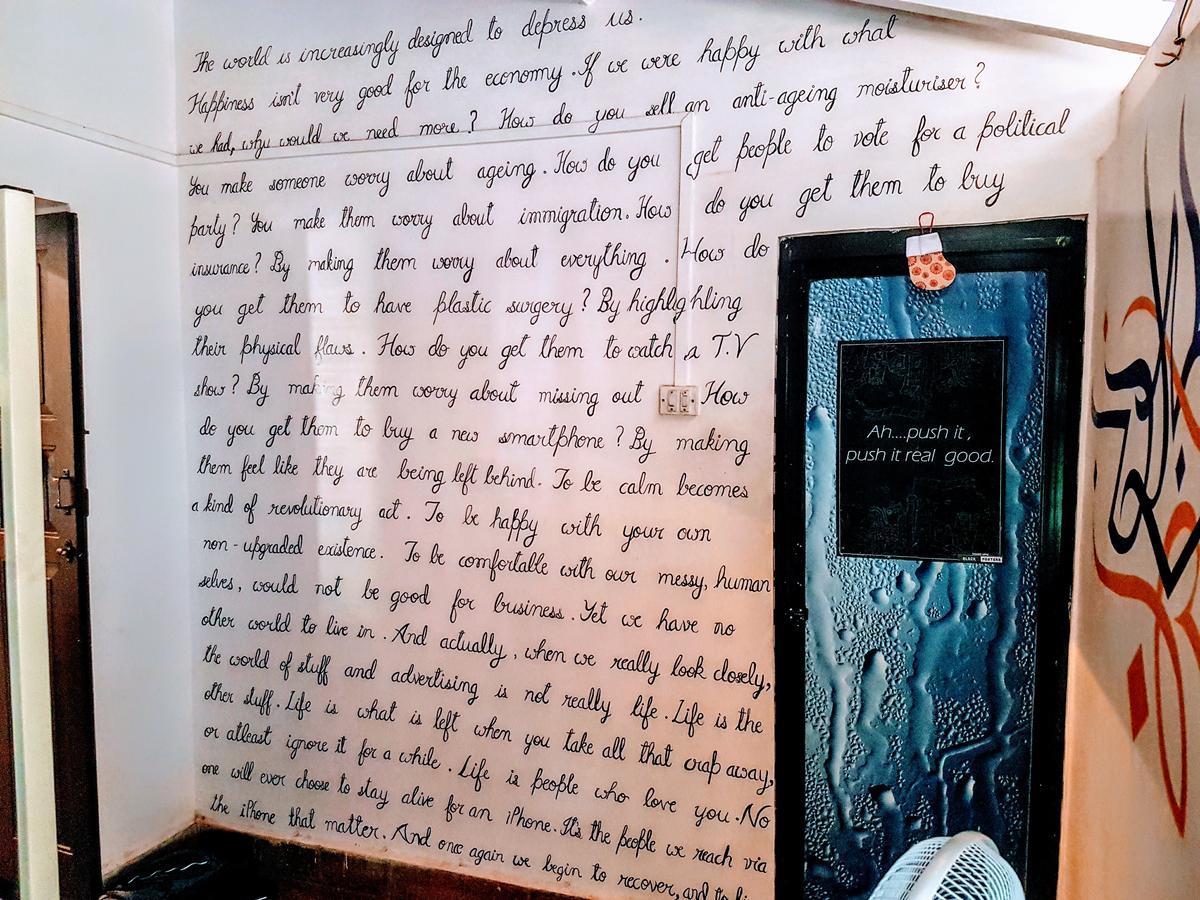 The world is increasingly designed to depress us.
Happiness isn't very good for the economy. If we were happy with what
we had, why would we need more? How do you sell an anti-ageing moisturiser?
You make someone worry about ageing. How do you get people to vote for a political
party? You make them worry about immigration. How do you get them to buy
insurance? By making them worry about everything. How do
you get them to have plastic surgery? By highlighling
their physical flaws. How do you get them to watch a T.V
show? By making them worry about missing out How
do you get them to buy a new smartphone? By making
them feel like they are being left behind. To be calm becomes
a kind of revolutionary act. To be happy with your own
non-upgraded existence. To be comfortable with our messy, human
selves, would not be good for business. Yet we have no
other world to live in. And actually, when we really look closely,
the world of stuff and advertising is not really life. Life is the
other stuff. Life is what is left when you take all that crap away,
or atleast ignore it for a while. Life is people who love you. No
one will ever choose to stay alive for an iPhone. It's the people we reach via
the iPhone that matter. And once again we begin to recover, and to
Ah....push it,
push it real good.